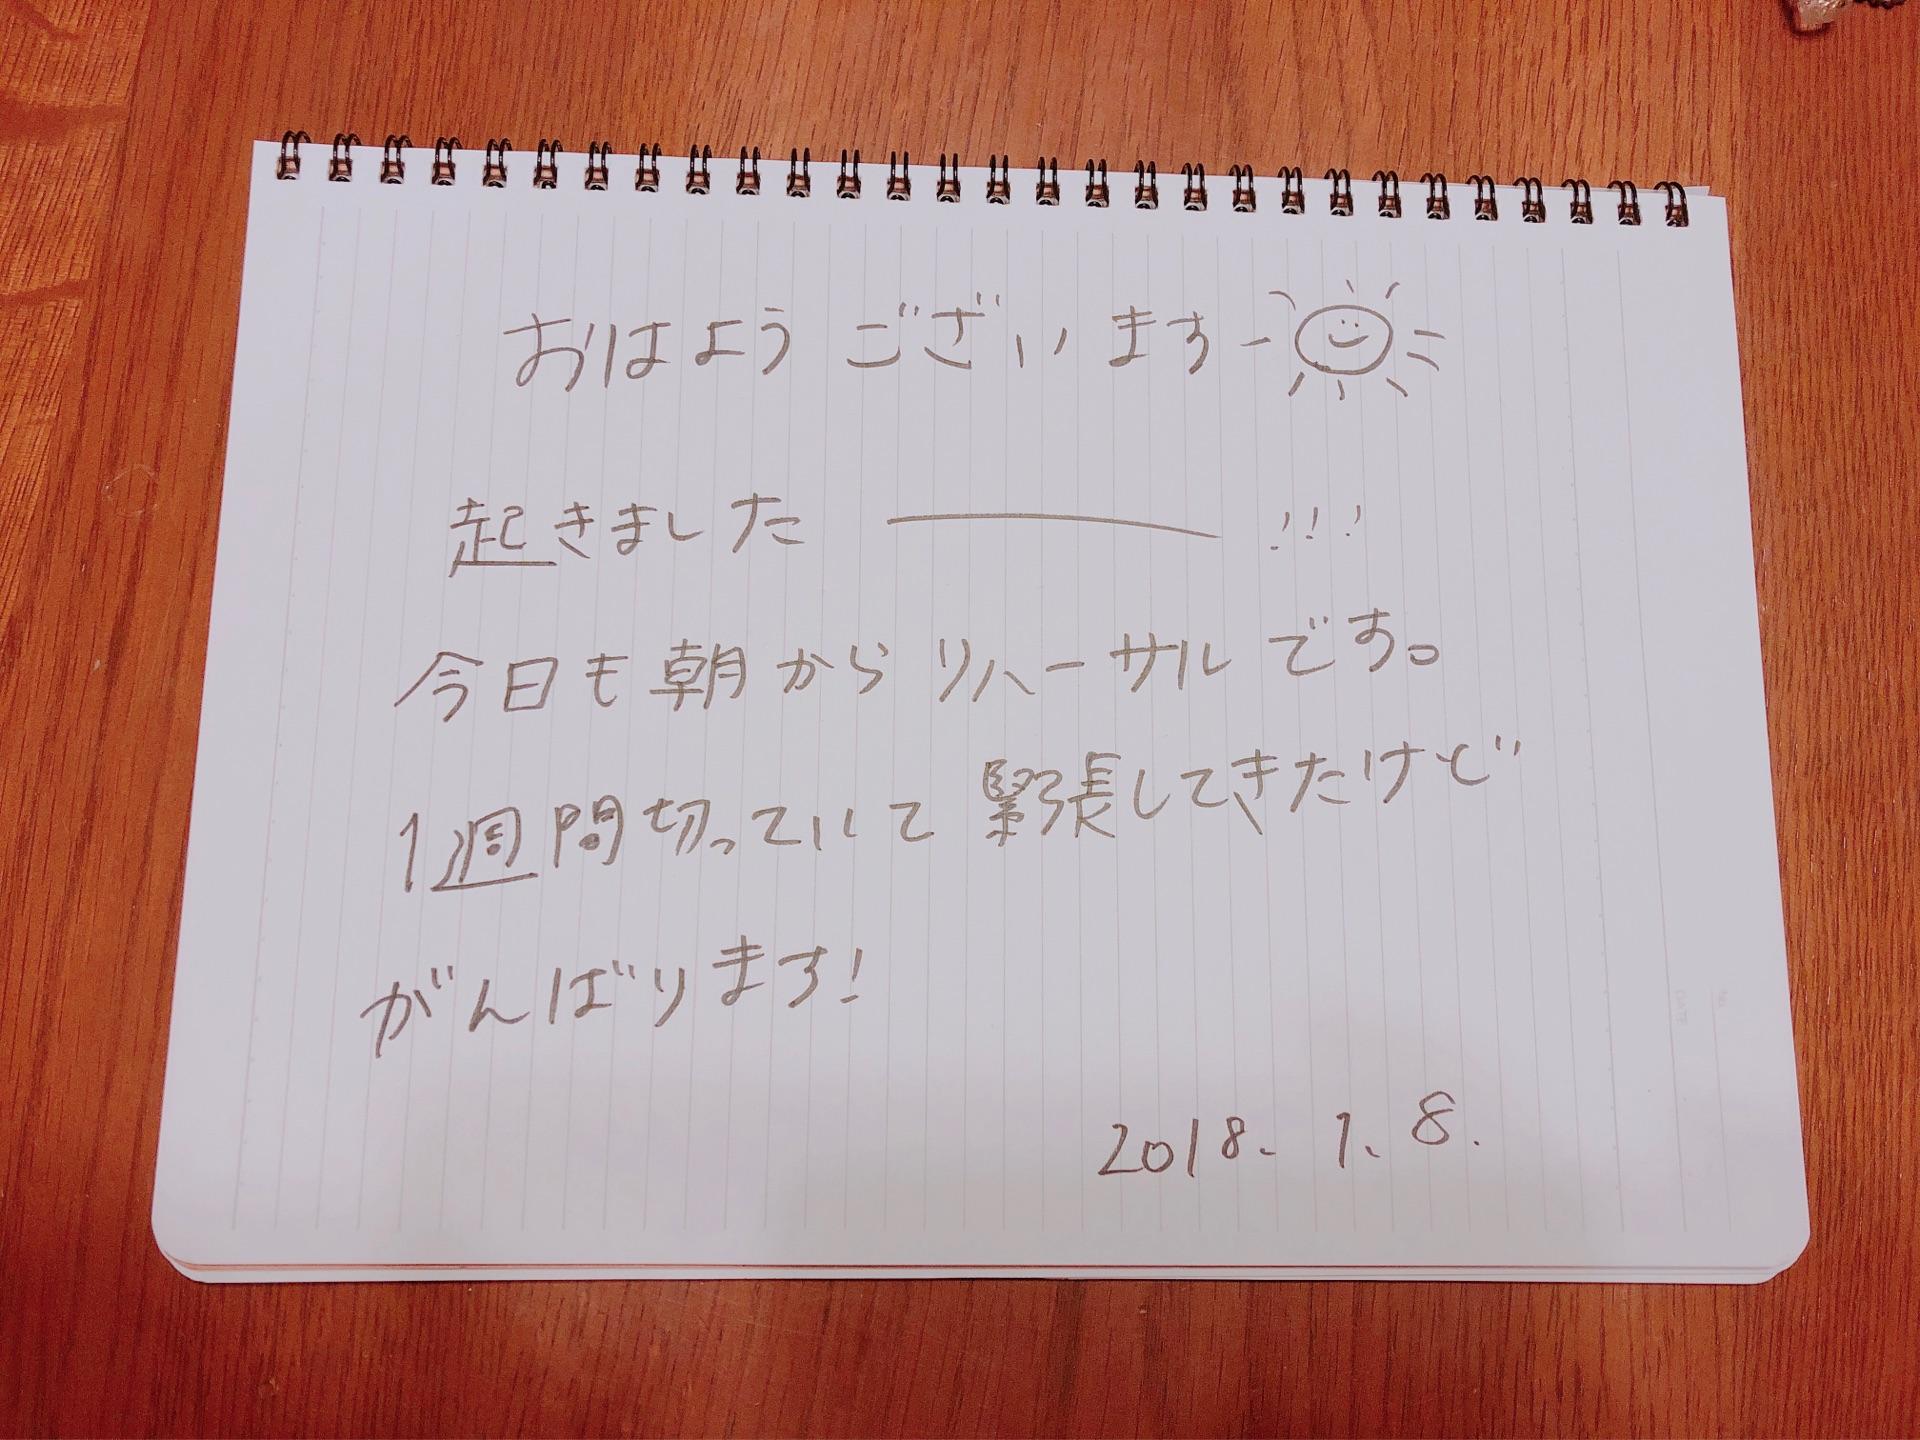 おはようございますー
起きました———!!!
今日も朝からリハーサルです。
1週間切っていて緊張してきたけど
がんばります!
2018.1.8.